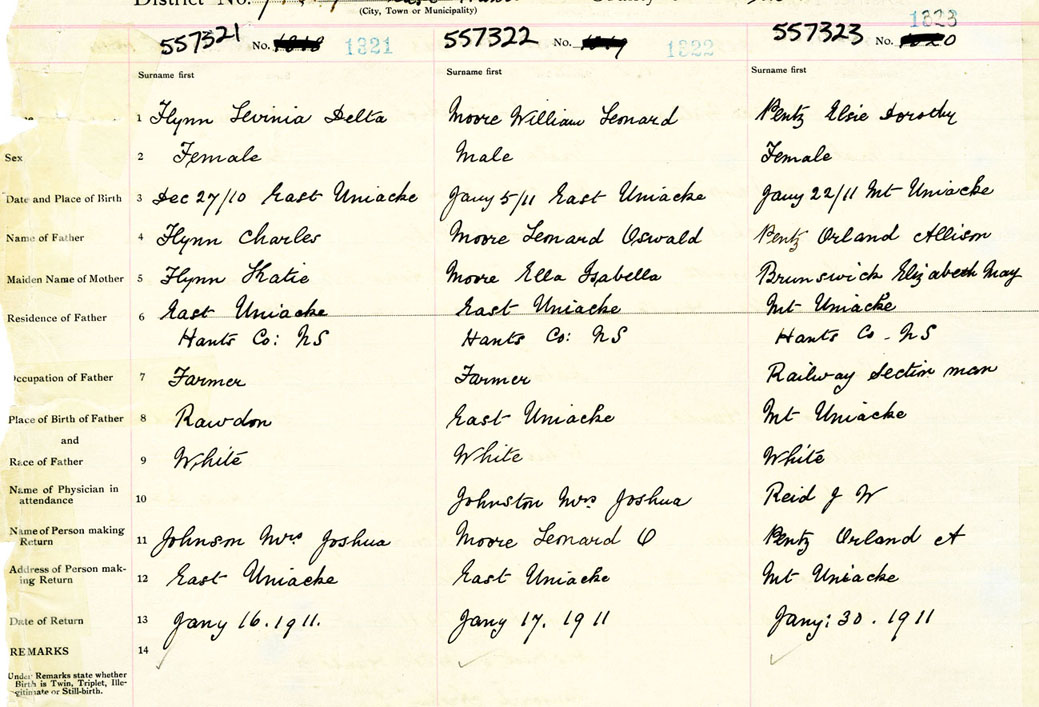 District No.
(City, Town or Municipality)
557321 No. 1321
557322 No. 1322
557323 No. 1323
Surname first Surname first Surname first
1 Flynn Levinia Delta Moore William Leonard Pentz Elsie Dorothy
Sex 2 Female Male Female
Date and Place of Birth 3 Dec 27/10 East Uniacke Jany 5/11 East Uniacke Jany 22/11 Mt Uniacke
Name of Father 4 Flynn Charles Moore Leonard Oswald Pentz Orland Allison
Maiden Name of Mother 5 Flynn Katie Moore Ella Isabella Brunswick Elizabeth May
Residence of Father 6 East Uniacke East Uniacke Mt Uniacke
Hants Co: NS Hants Co: NS Hants Co - NS
Occupation of Father 7 Farmer Farmer Railway Section man
Place of Birth of Father 8 Rawdon East Uniacke Mt Uniacke
and
Race of Father 9 White White White
Name of Physician in
attendance 10 Johnston Mrs Joshua Reid J W
Name of Person making
Return 11 Johnson Mrs Joshua Moore Leonard O Pentz Orland A
Address of Person mak-
ing Return 12 East Uniacke East Uniacke Mt Uniacke
Date of Return 13 Jany 16. 1911. Jany 17. 1911 Jany: 30. 1911
REMARKS 14
Under Remarks state whether
Birth is Twin, Triplet, Ille-
gitimate or Still-birth.